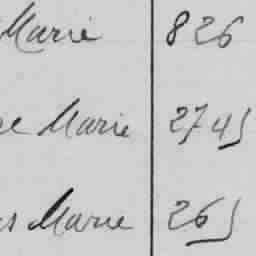 Marie 826
Marie 2745
Marie 265